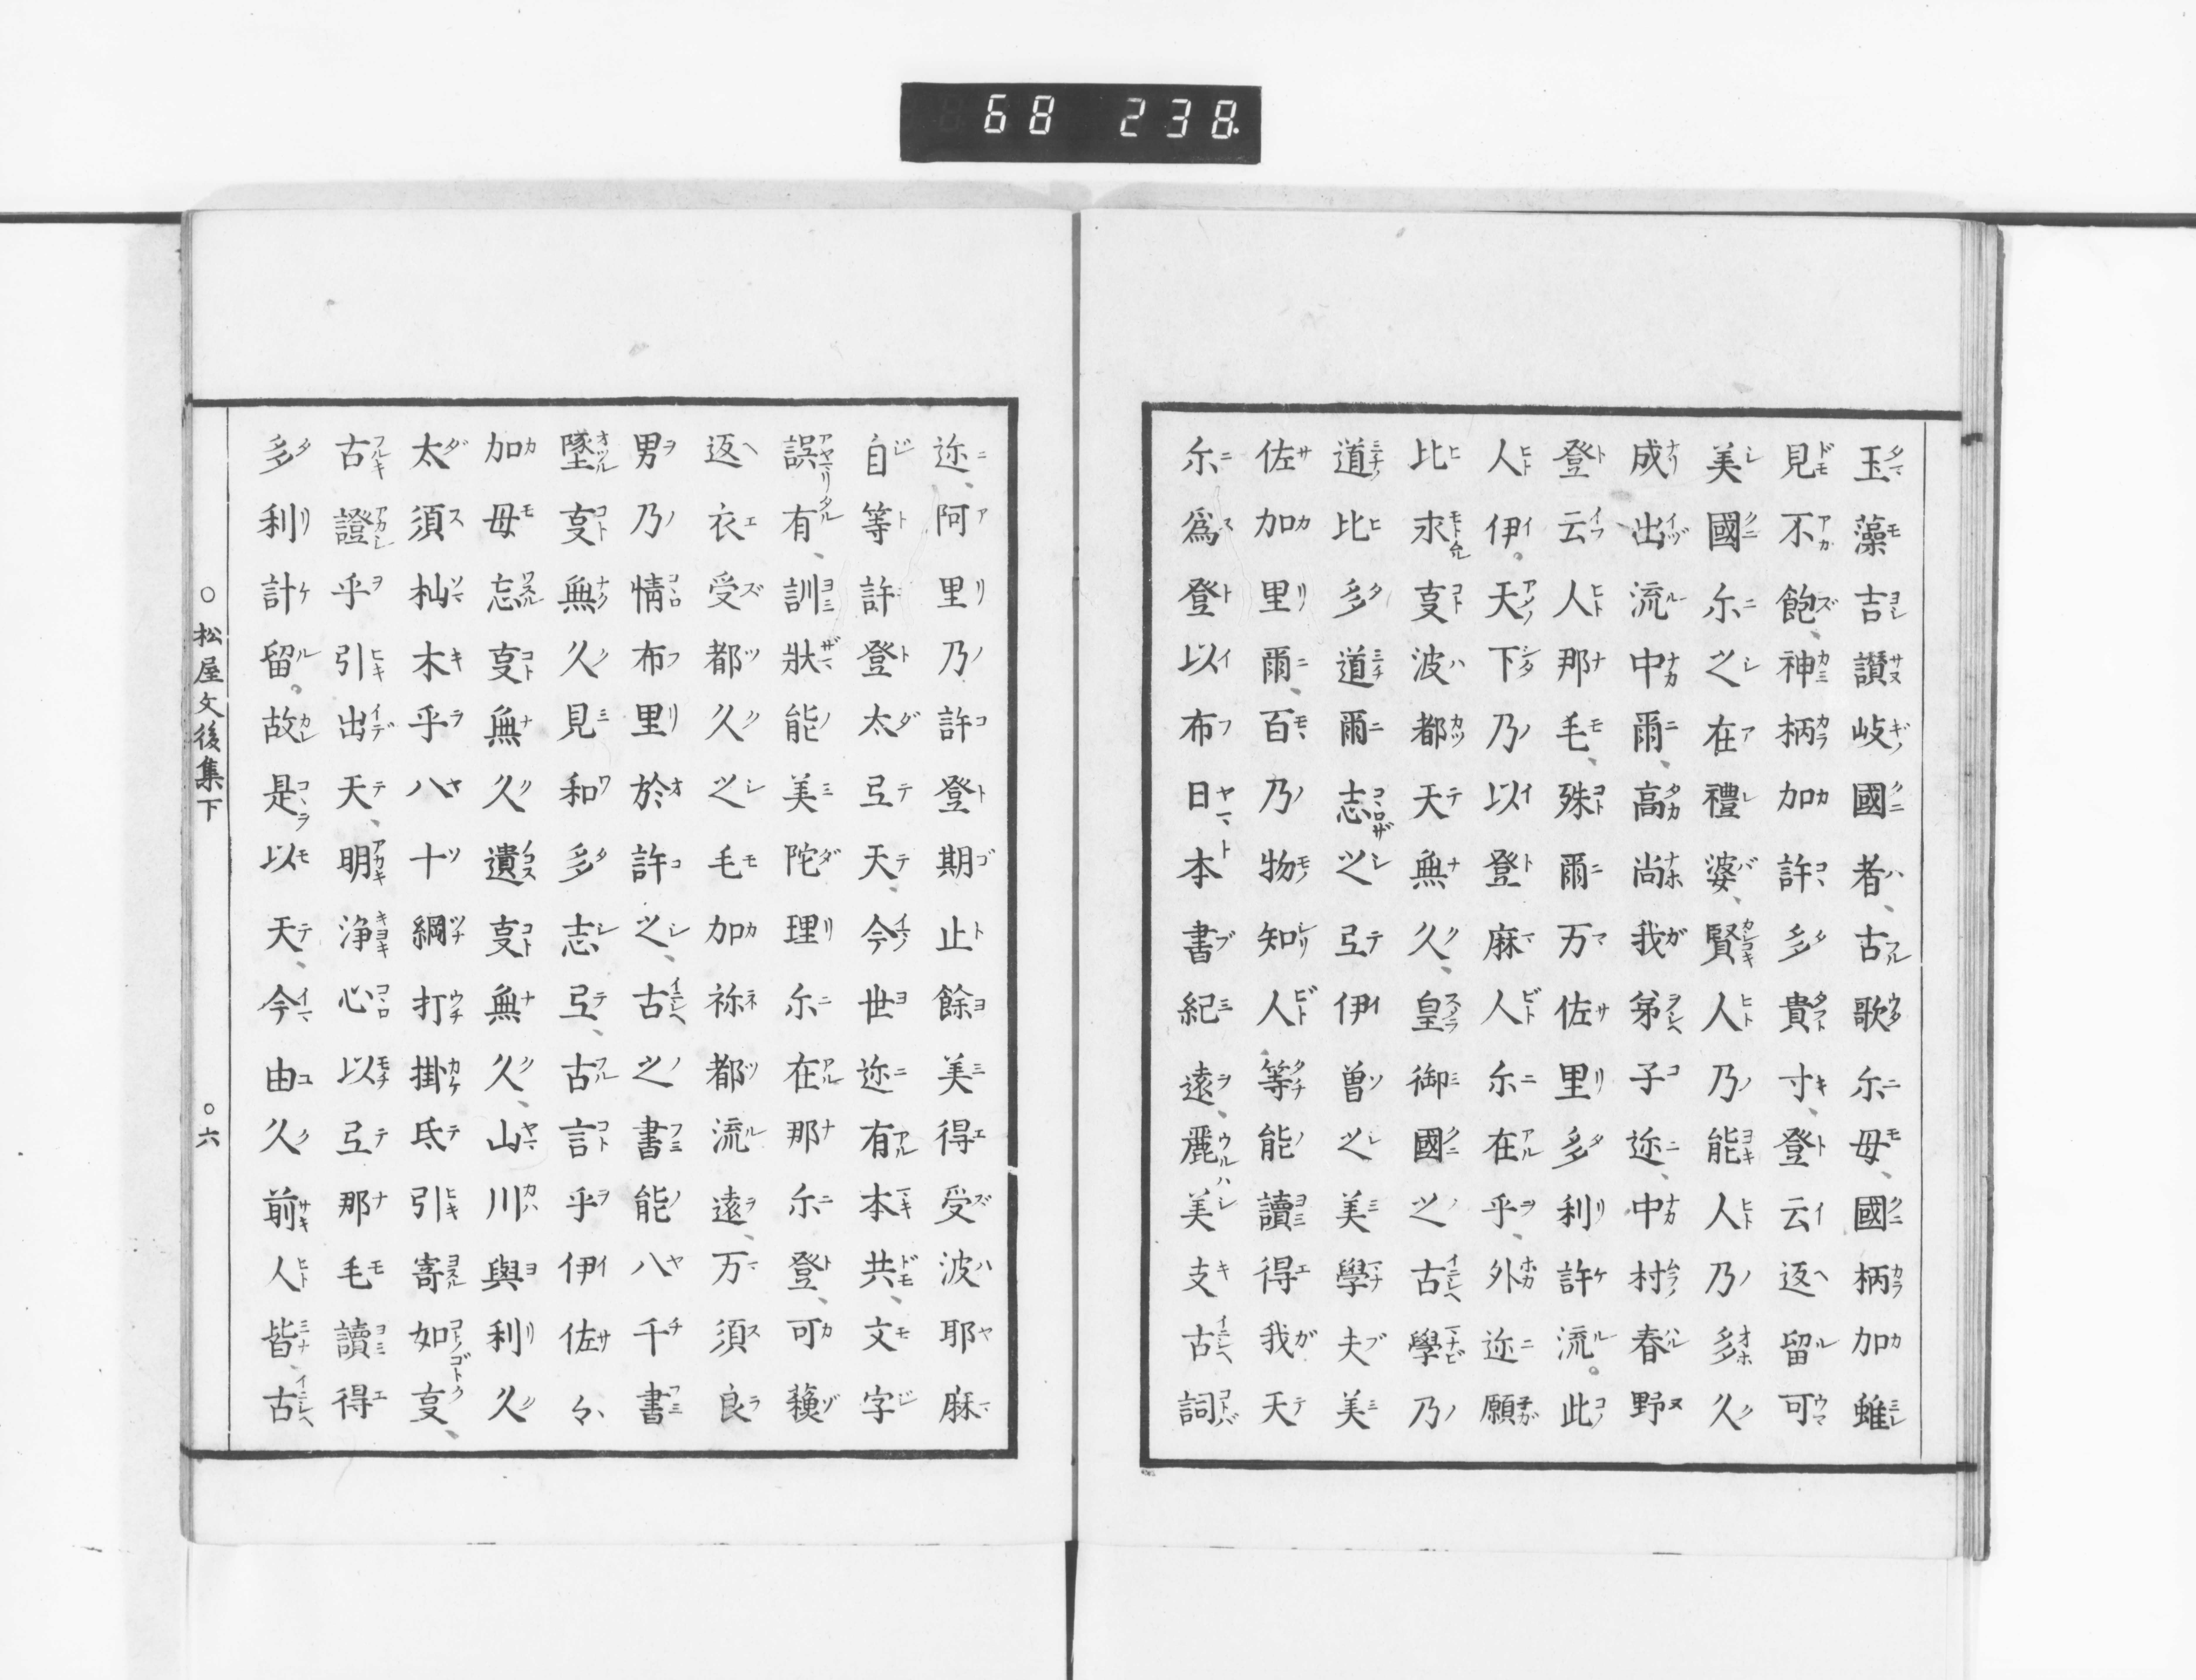 68 238.
玉藻吉讃岐國者、古歌尓母、國柄加雖
見不飽、神柄加許多貴寸、登云返留可
美國尓之在禮婆、賢人乃能人乃多久
成出流中爾、高尚我弟子迩、中村春野
登云人那毛、殊爾万佐里多利許流。此
人伊。天下乃以登麻人尓在乎、外迩願
比求叓波都天無久、皇御國之古學乃
道比多道爾志之弖伊曽之美學夫美
佐加里爾、百乃物知人等能讀得我天
尓爲登以布日本書紀遠、麗美支古詞
迩、阿里乃許登期止餘美得受波耶麻
自等許登太弖天、今世迩有本共、文字
誤有、訓狀能美陀理尓在那尓登、可藐
返衣受都久之毛加祢都流遠、万須良
男乃情布里於許之、古之書能八千書
墜叓無久見和多志弖、古言乎伊佐々
加母忘叓無久遺叓無久、山川與利久
太須杣木乎八十綱打掛氐引寄如叓、
古證乎引出天、明浄心以弖那毛讀得
多利計留。故是以天、今由久前人皆古
○松屋文後集下
○六